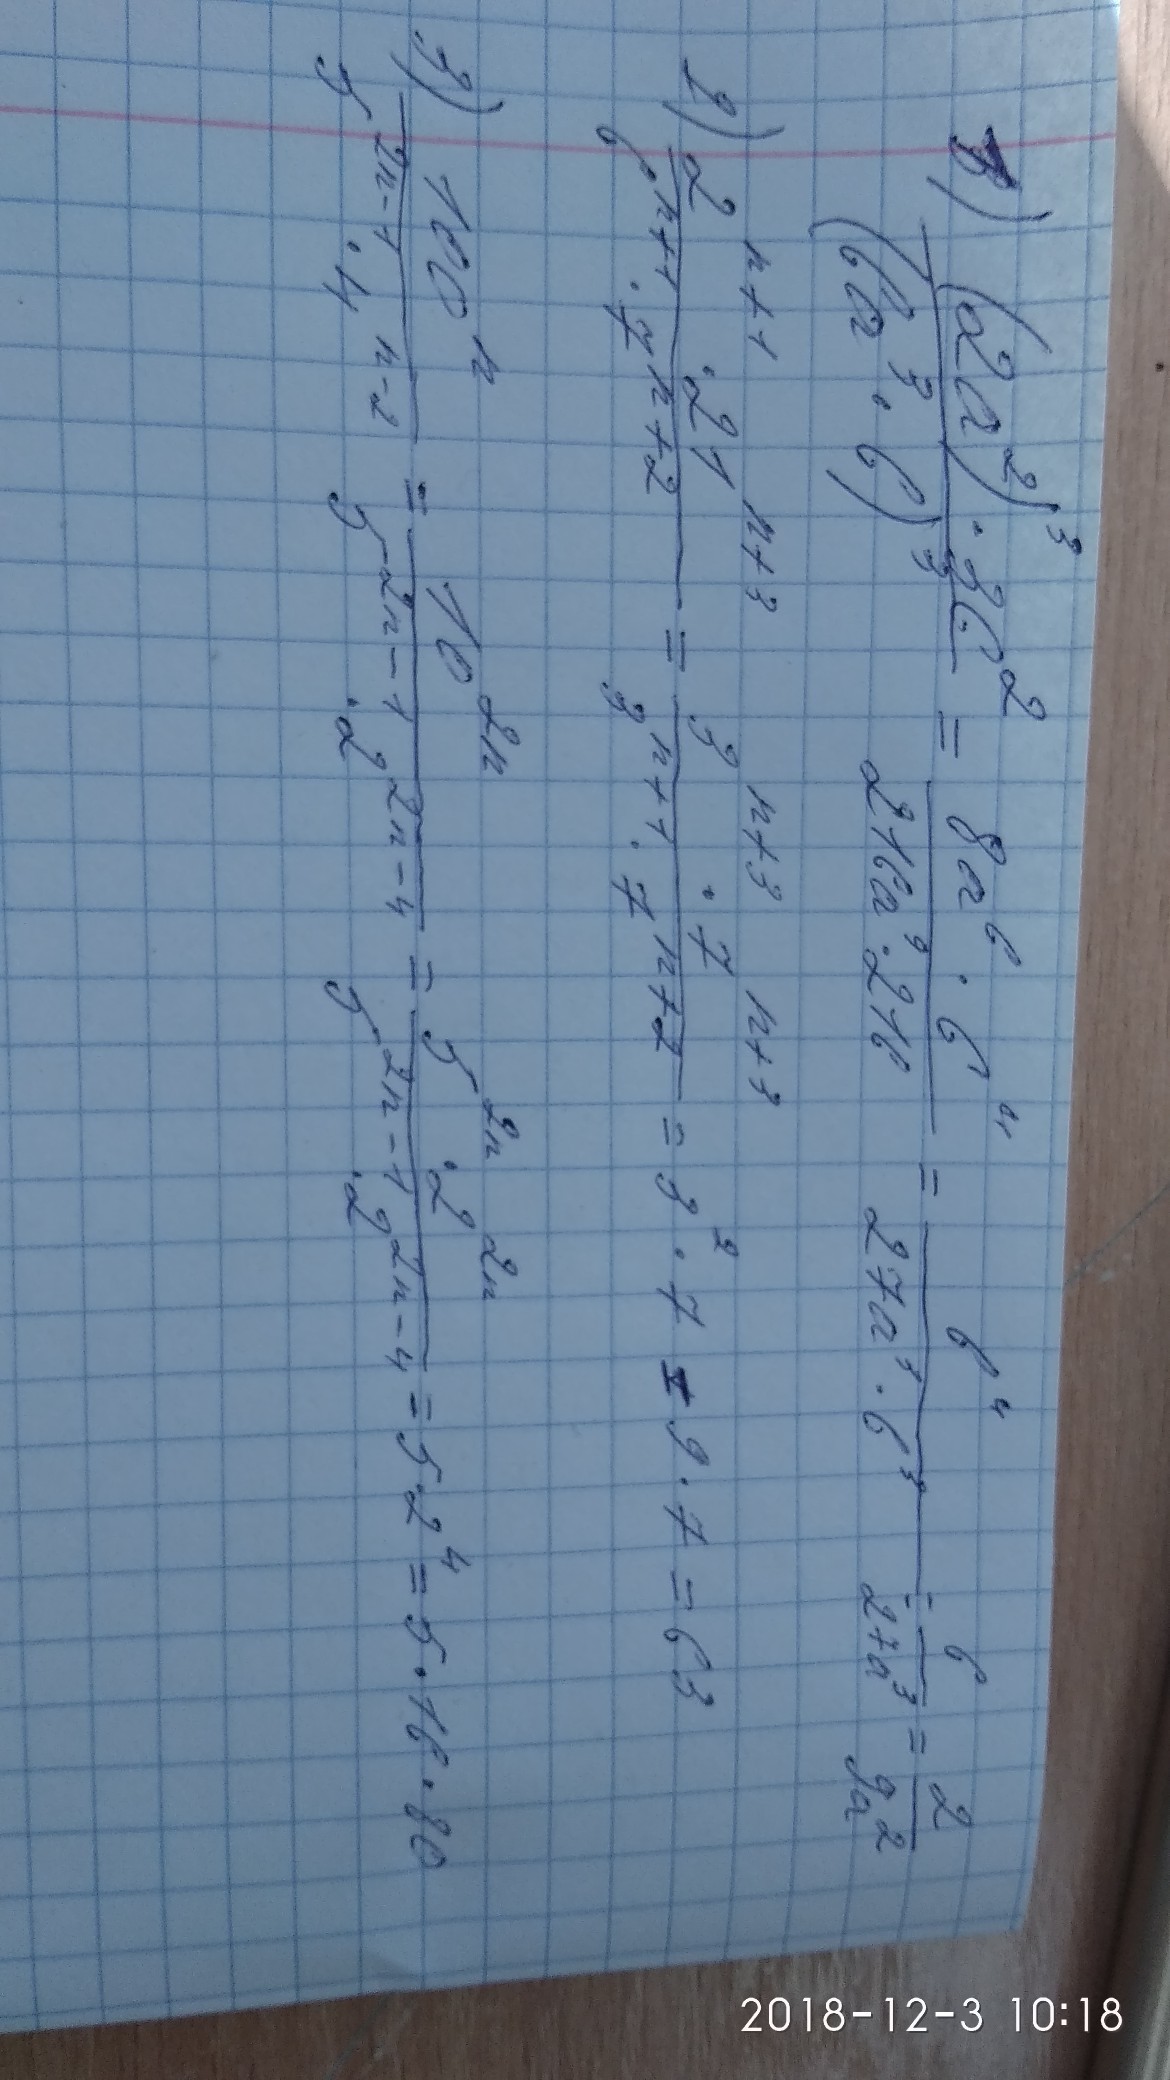 1) (2a²)³ · 36² / (6a³ · 6)³ = 8a⁶ · 6⁴ / 216a⁹ · 216 = 6⁴ / 27a³ · 6³ = 6 / 27a³ = 2 / 9a²
2) 2ⁿ⁺¹ · 21ⁿ⁺³ / 6ⁿ⁺¹ · 7ⁿ⁺² = 3ⁿ⁺³ · 7ⁿ⁺³ / 3ⁿ⁺¹ · 7ⁿ⁺² = 3² · 7 = 9 · 7 = 63
3) 100ⁿ / 5²ⁿ⁻¹ · 4ⁿ⁻² = 10²ⁿ / 5²ⁿ⁻¹ · 2²ⁿ⁻⁴ = 5²ⁿ · 2²ⁿ / 5²ⁿ⁻¹ · 2²ⁿ⁻⁴ = 5 · 2⁴ = 5 · 16 · 80
2018-12-3 10:18